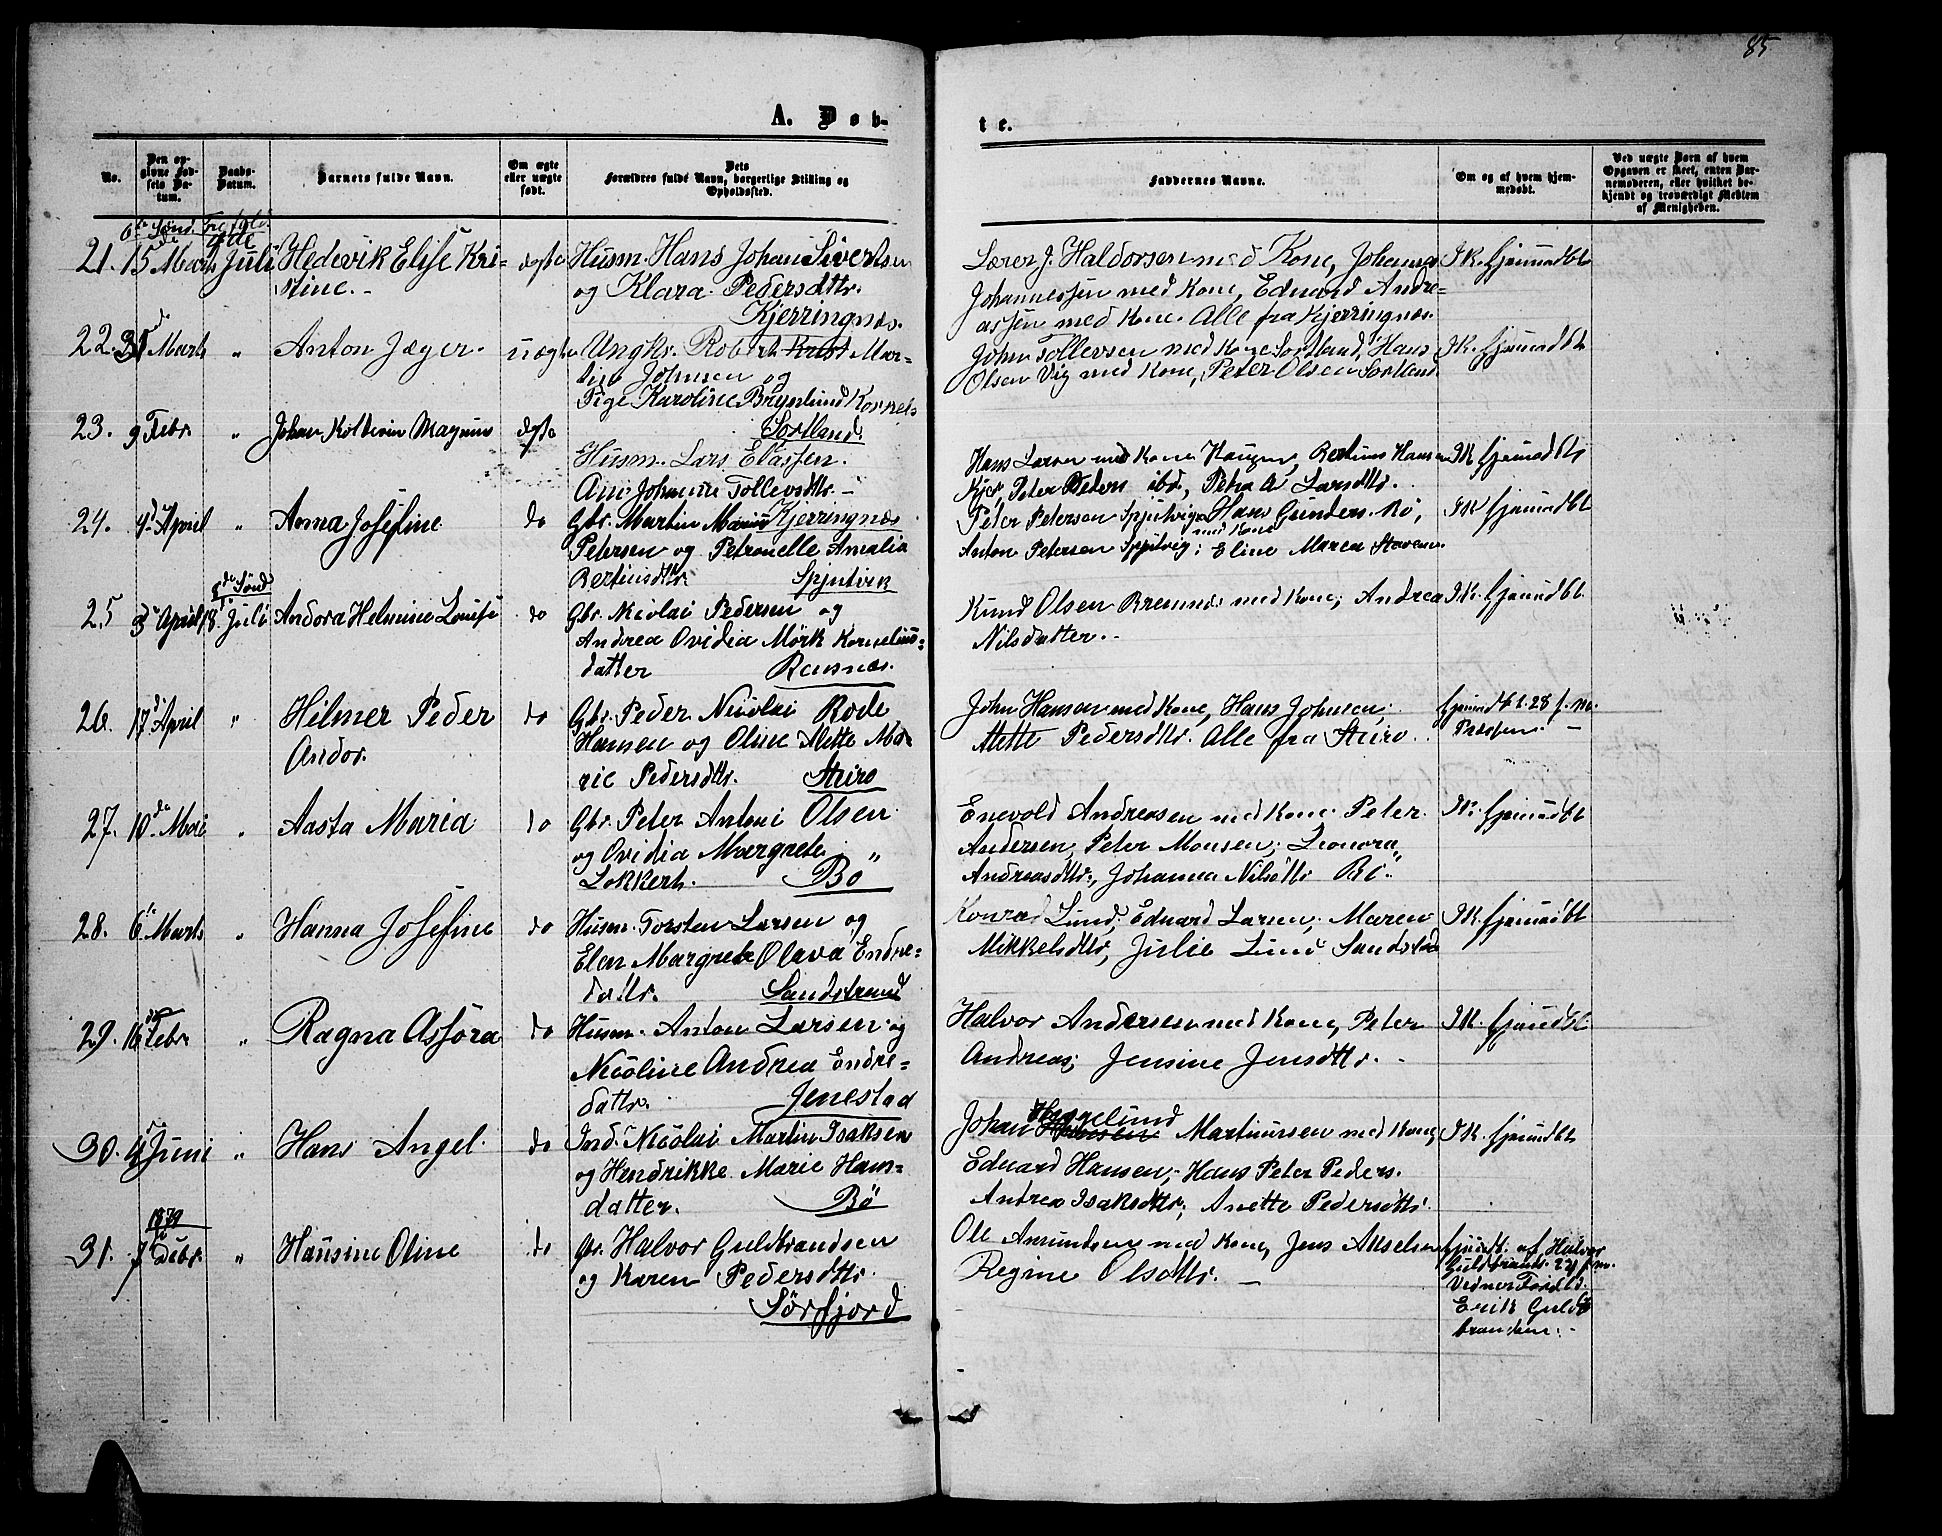 85
A. Døb-
te.
No.
Den opgivne Fødsels Datum.
Daabs-Datum.
Barnets fulde Navn.
Om ægte eller uægte født.
Dets Forældres fulde Navn, borgerlige Stilling og Opholdssted.
Faddernes Navne.
Om og af hvem hjemmedøbt.
Ved uægte Børn af hvem Opgaven er skeet, enten Barnemoderen, eller hvilket bekjendt og troværdigt Medlem af Menigheden.
6te Sönd. Tre
21. 15de Marts 4de Juli Hedevik Elise Kri- ægte Husm. Hans Johan Sivertsen
stine.- og Klara Pedersdttr.
Kjerringnæs.
Lærer J. Haldorsen med Kone, Johannes
Johannessen med Kone, Eduard Andre-
assen med Kone. Alle fra Kjerringnæs.
22. 31 Marts " Anton Jæger. uægte Ungkr. Robert Mar-
Johnsen og
Pige Karoline Brynlund
Sortland.
John Tollevsen med Kone Sortland, Hans
Olsen Vig med Kone, Peter Olsen Sortland
23. 9 Febr. " Johan Kolbein Magnus ægte
Husm. Lars Eliassen.
Ane Johanna Tollevsdttr. -
Kjerringnæs
Hans Larsen med Kone Haugen, Bertinus Hansen
Kjer, Peter Peters ibd., Petra A Larsdttr.
24. 4d April " Anna Josefine do Gbr. Martin Marius
Petersen og Petronelle Amalia
Bertinsdttr. Spjutvik
Peter Petersen Spjutvig, Hans Gunders. Bö,
med Kone
Anton Petersen Spjutvig; Eline Marea
8de Sönd
25 3d April 18. Juli Andora Helmine Louise do Gbr. Nicolai Pedersen og
Andrea Ovidia Mørk Kornelius-
datter Ramnæs.
Knud Olsen Bremnes med Kone, Andrea
Nilsdatter.-
26. 17d April " Hilmer Peder do Gbr. Peder Nicolai Rode
Andor. Hansen og Oline Alette Ma-
rie Pedersdttr. Stiro
John Hansen med Kone, Hans Johnsen;
Alette Pedersdttr. Alle fra Stiro.
27. 10de Mai " Aasta Maria do Gbr. Peter Antoni Olsen
og Ovidia Margrete
Lokkert. Bö
Enevold Andreasen med Kone. Peter
Andersen, Peter Monsen; Leonora
Andreasdttr, Johanna Nilsdttr Bö.
28. 6te Marts " Hanna Josefine do Husm. Torsten Larsen og
Elen Margrete Olava Endre-
dattr. Sandstrand
Konrad Lund, Eduard Larsen, Maren
Mikkelsdttr, Julie Lund Sandstrand
29. 16de Febr. " Ragna Assora do Husm. Anton Larsen og
Nicoline Andrea Endre-
dattr. Jenestad
Halvor Andersen med Kone, Peter
Andreas; Jensine Jensdttr. -
30. 4 Juni " Hans Angel. do Ind. Nicolai Martin Isaksen
og Hendrikke Marie Hans-
datter. Bö
Johan Martinussen med Kone,
Eduard Hansen, Hans Peter Peders.
Andrea Isaksdttr, Anette Pedersdttr
1879
31. 7de Debr. " Hansine Oline do Gbr. Halvor Guldbrandsen
og Karen Pedersdttr.
Sørfjord
Ole Amundsen med Kone, Jens Akselsen
Regine Olsdttr. -
af Halvor
Guldbrands.
Erik Guld-
brandsen.-